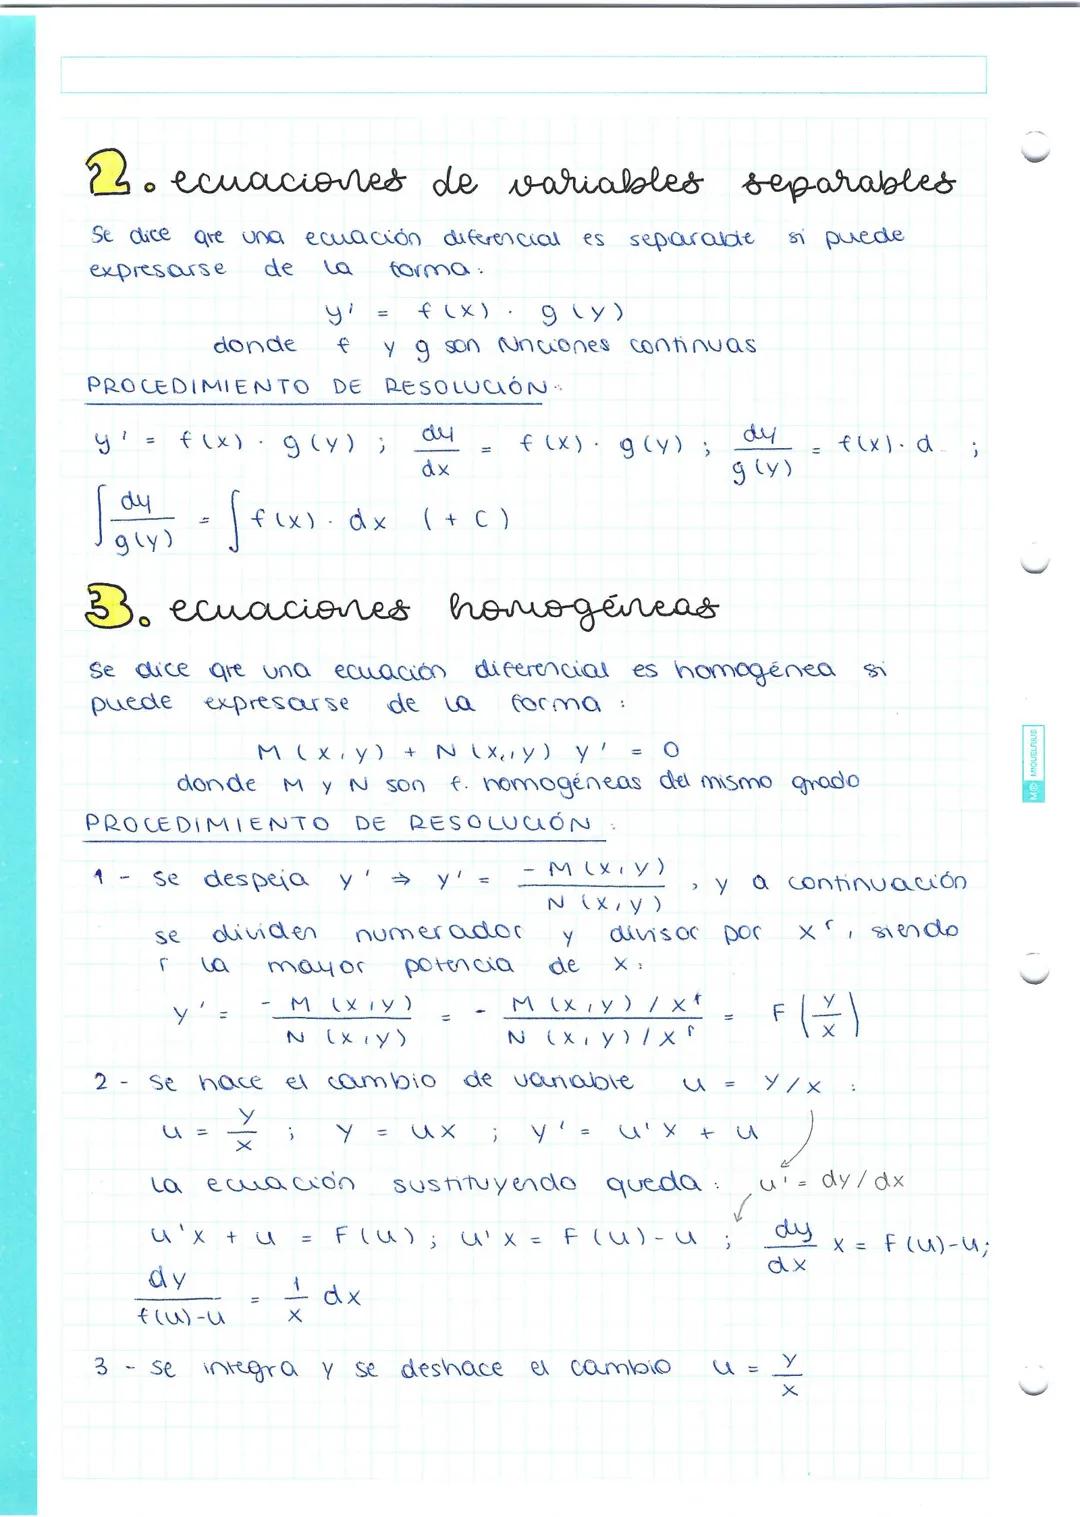 2. ecuaciones de variables separables
Se dice que una ecuación diferencial es separable si puede
expresarse de la forma:
y' = f(x) · g(y)
donde f y g son funciones continuas
PROCEDIMIENTO DE RESOLUCIÓN:
y' = f(x) · g(y) ; dy/dx = f(x) · g(y) ; dy/g(y) = f(x) · d ;
∫ dy/g(y) = ∫ f(x) · dx (+ C)
3. ecuaciones homogéneas
Se dice que una ecuación diferencial es homogénea si
puede expresarse de la forma :
M (x,y) + N (x,y) y' = 0
donde M y N son f. homogéneas del mismo grado
PROCEDIMIENTO DE RESOLUCIÓN :
1 - Se despeja y' ⇒ y' = -M(x,y)/N(x,y) , y a continuación
se dividen numerador y divisor por x^r, siendo
r la mayor potencia de x:
y' = -M(x,y)/N(x,y) = - (M(x,y)/x^r)/(N(x,y)/x^r) = F(y/x)
2 - Se hace el cambio de variable u = y/x :
u = y/x ; y = ux ; y' = u'x + u
La ecuación sustituyendo queda : u' = dy/dx
u'x + u = F(u) ; u'x = F(u)-u ; dy/dx x = F(u)-u;
dy/f(u)-u = 1/x dx
3 - Se integra y se deshace el cambio u = y/x
MIQUELRIUS